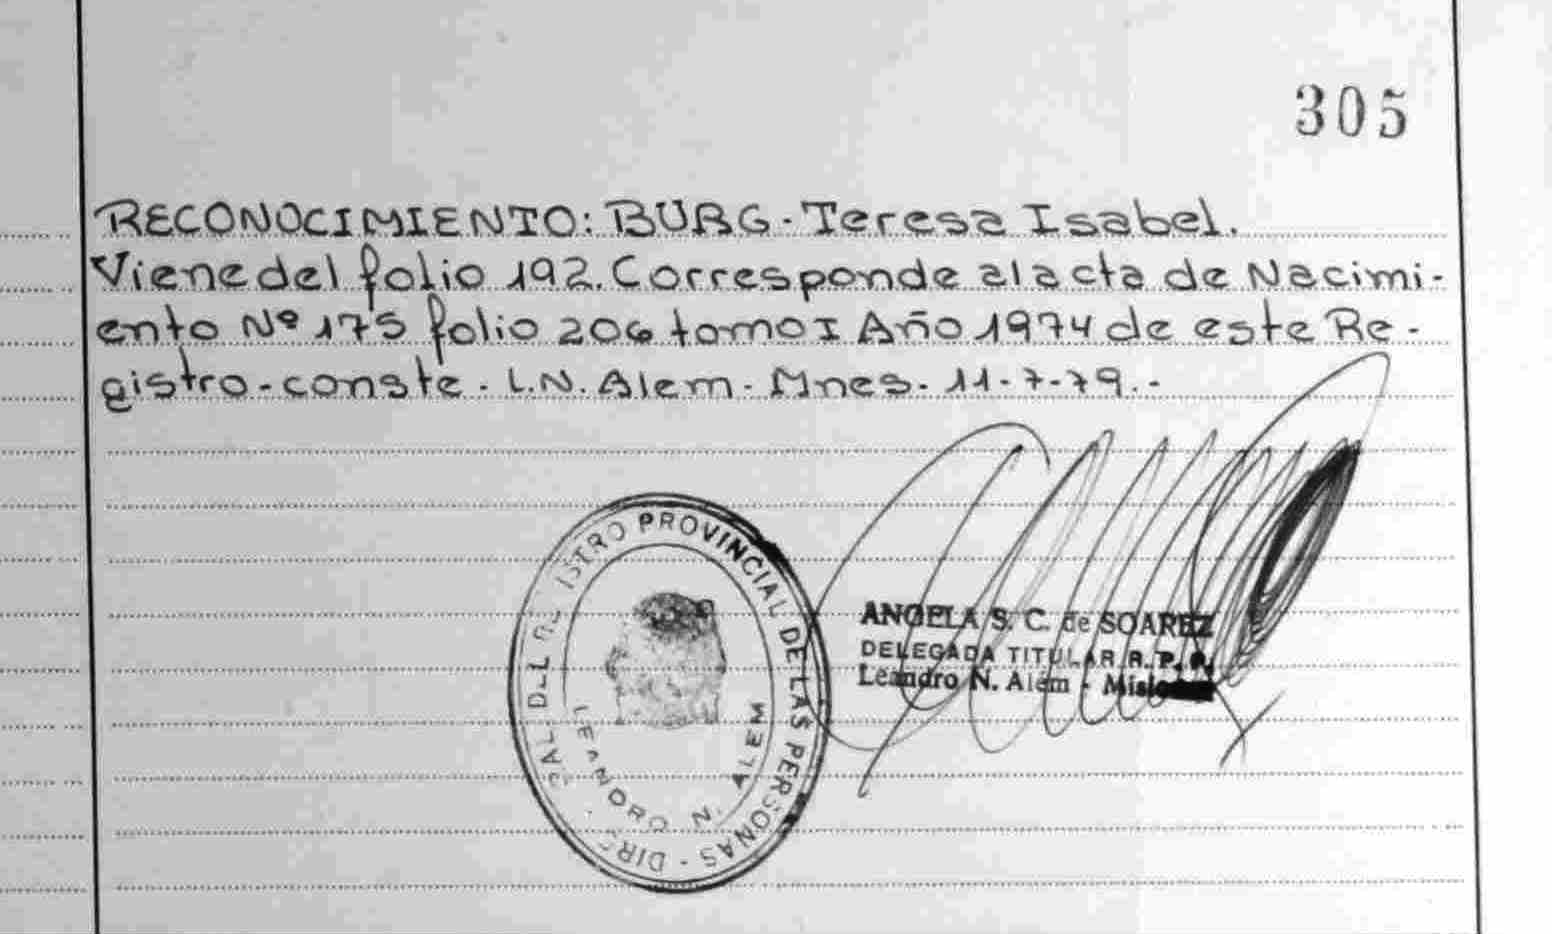 305
RECONOCIMIENTO: BURG - Teresa Isabel.
Viene del folio 192. Corresponde al acta de Nacimi-
ento Nº 175 folio 206 tomo I Año 1974 de este Re-
gistro - conste. L.N. Alem - Mnes. 11-7-79.-
ISTRO PROVINCIAL DE LAS PERSONAS - DIR
LEANDRO N. ALEM
ANGELA S. C. de SOAREZ
DELEGADA TITULAR R. P. P.
Leandro N. Alem -